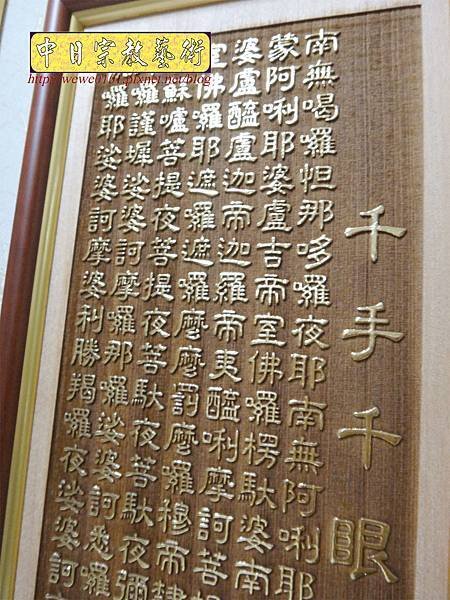 中日宗教藝術
千手千眼
南無喝囉怛那哆囉夜耶南無阿唎耶
蒙阿唎耶婆盧吉帝室佛囉楞馱婆南
婆盧醯盧迦帝迦羅帝夷醯唎摩訶菩
佛囉耶遮囉遮囉麼麼罰摩囉穆帝隸
蘇嚧菩提夜菩提夜菩馱夜菩馱夜彌
囉謹墀娑婆訶摩囉那囉娑婆訶悉囉
囉耶娑婆訶摩婆利勝羯囉夜娑婆訶